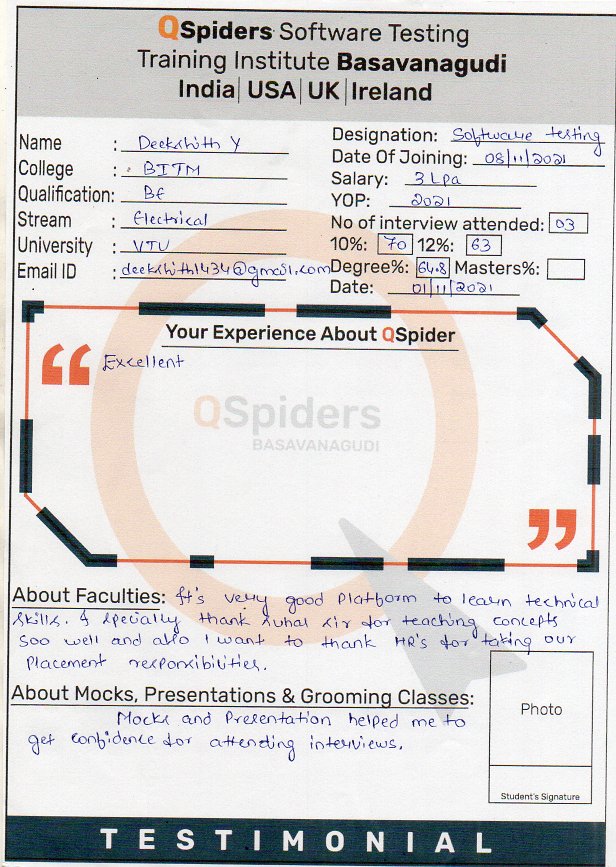 QSpiders Software Testing
Training Institute Basavanagudi
India| USA| UK| Ireland
Name : Deekshith Y
College : BITM
Qualification: BE
Stream : Electrical
University : VTU
Email ID : deekshith1434@gmail.com
Designation: Software testing
Date Of Joining: 08/11/2021
Salary: 3 Lpa
YOP: 2021
No of interview attended: 03
10%: 70 12%: 63
Degree%: 64.8 Masters%:
Date: 01/11/2021
Your Experience About QSpider
“ Excellent
QSpiders
BASAVANAGUDI
”
About Faculties: It's very good Platform to learn technical
skills. I specially thank suhas sir for teaching concepts
soo well and also I want to thank HR's for taking our
Placement responsibilities.
About Mocks, Presentations & Grooming Classes:
Mocks and Presentation helped me to
get confidence for attending interviews.
Photo
Student's Signature
TESTIMONIAL